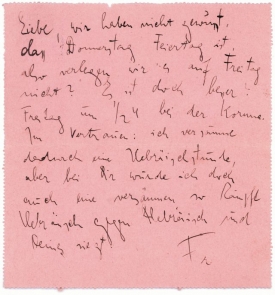 Liebe, wir haben nicht gewusst,
dass Donnerstag Feiertag ist,
also verlegen wir es auf Freitag
nicht? Es ist doch besser?
Freitag um 1/2 4 bei der Korune.
Im Vertrauen: ich versäume
dadurch eine Hebräischstunde,
aber bei Dir würde ich doch
auch eine versäumen so kämpft
Hebräisch gegen Hebräisch und
keines siegt
Fr